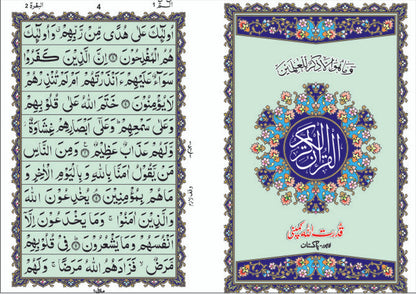 البقرة ٢
4
الٓمّٓ ١
اُولٰٓئِكَ عَلٰى هُدًى مِّنْ رَّبِّهِمْ ۙ وَاُولٰٓئِكَ
هُمُ الْمُفْلِحُوْنَ ۝ اِنَّ الَّذِيْنَ كَفَرُوْا
سَوَآءٌ عَلَيْهِمْ ءَاَنْذَرْتَهُمْ اَمْ لَمْ تُنْذِرْهُمْ
لَا يُؤْمِنُوْنَ ۝ خَتَمَ اللّٰهُ عَلٰى قُلُوْبِهِمْ
وَعَلٰى سَمْعِهِمْ ؕ وَعَلٰٓى اَبْصَارِهِمْ غِشَاوَةٌ ؗ
وَّلَهُمْ عَذَابٌ عَظِيْمٌ ۝ وَمِنَ النَّاسِ
مَنْ يَّقُوْلُ اٰمَنَّا بِاللّٰهِ وَبِالْيَوْمِ الْاٰخِرِ وَ
مَا هُمْ بِمُؤْمِنِيْنَ ۝ يُخٰدِعُوْنَ اللّٰهَ
وَالَّذِيْنَ اٰمَنُوْا ۚ وَمَا يَخْدَعُوْنَ اِلَّآ
اَنْفُسَهُمْ وَمَا يَشْعُرُوْنَ ۝ فِيْ قُلُوْبِهِمْ
مَّرَضٌ ۙ فَزَادَهُمُ اللّٰهُ مَرَضًا ۚ وَلَهُمْ
وما هو الا ذكر للعلمين
القرآن الكريم
قدرت اللہ کمپنی
لاہور۔ پاکستان